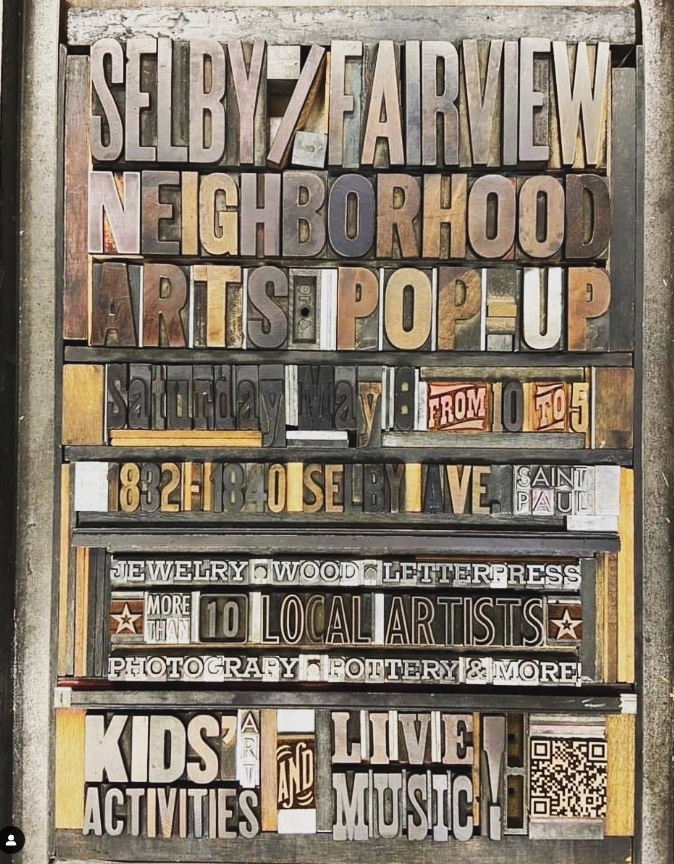 SELBY/FAIRVIEW
NEIGHBORHOOD
ARTS POP-UP
Saturday May 8 FROM 10 TO 5
1832-1840 SELBY AVE. SAINT PAUL
JEWELRY WOOD LETTERPRESS
MORE THAN 10 LOCAL ARTISTS
PHOTOGRAPY POTTERY & MORE!
KIDS' ART ACTIVITIES
AND
LIVE MUSIC!